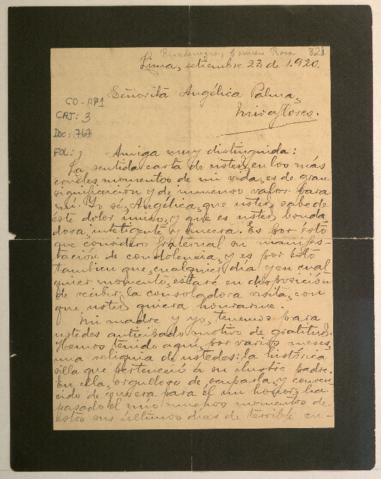 Rosa 321
Lima, setiembre 23 de 1920.
Señorita Angélica Palma,
Miraflores.
CO-AP1
CAJ: 3
DOC: 767
FOL: 1
Amiga muy distinguida:
La sentida carta de usted, en los más
crueles momentos de mi vida, es de gran
significación y de inmenso valor para
mí. Yo sé, Angélica, que usted sabe de
este dolor único, y que es usted bonda
dosa, inteligente y sincera. Es por esto
que considero fraternal su manifes
tación de condolencia, y es por esto
tambien que, cualquier día y en cual
quier momento, estaré en disposición
de recibir la consoladora visita, con
que usted quiera honrarme.
Mi madre y yo, tenemos para
ustedes anticipado motivo de gratitud.
Hemos tenido aquí, por varios meses,
una reliquia de ustedes: la histórica
silla que perteneció a su ilustre padre.
En ella, orgulloso de ocuparla y conven
cido de que era para él un honor, ha
pasado el uno momentos de
estos sus últimos días de terrible en-